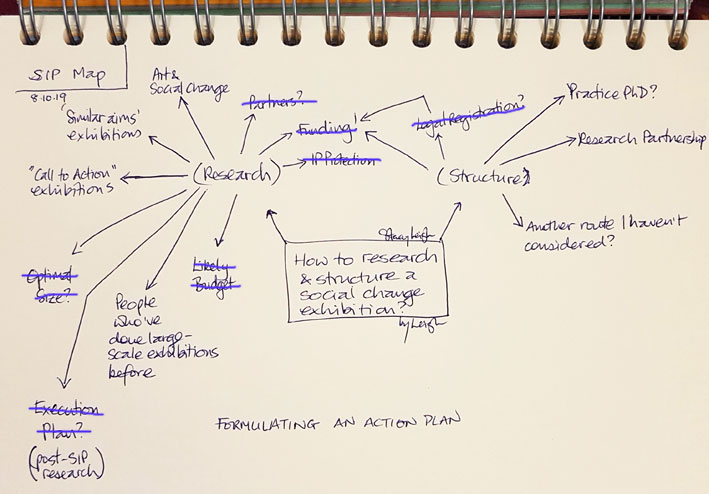 SIP Map
8.10.19
Art &
Social Change
'Similar aims'
exhibitions
"Call to Action"
exhibitions
Optimal
Size?
Execution
Plan?
(post-SIP
research)
People
who've
done large-
scale exhibitions
before
Likely
Budget
(Research)
Partners?
Funding!
IP Protection
Legal Registration?
(Structure?)
Practice PhD?
Research Partnership
Another route I haven't
considered?
How to research
& structure a
social change
exhibition?
FORMULATING AN ACTION PLAN